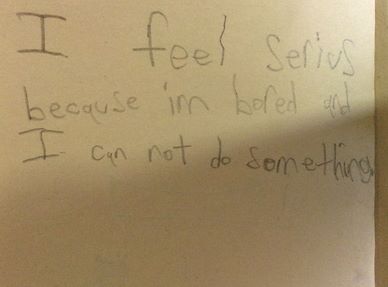 I feel serius
becquse im bored and
I can not do something